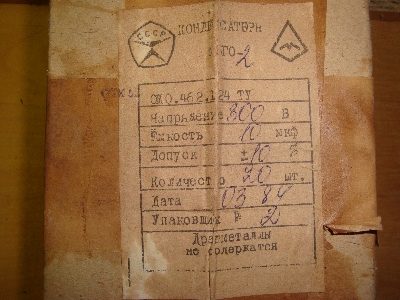 СССР
КОНДЕНСАТОРЫ
МБГО-2
ОЖ0.462.124 ТУ
Напряжение 300 В
Ёмкость 10 мкф
Допуск ±10 %
Количество 20 шт.
Дата 03 84
Упаковщик № 2
Драгметаллы
не содержатся